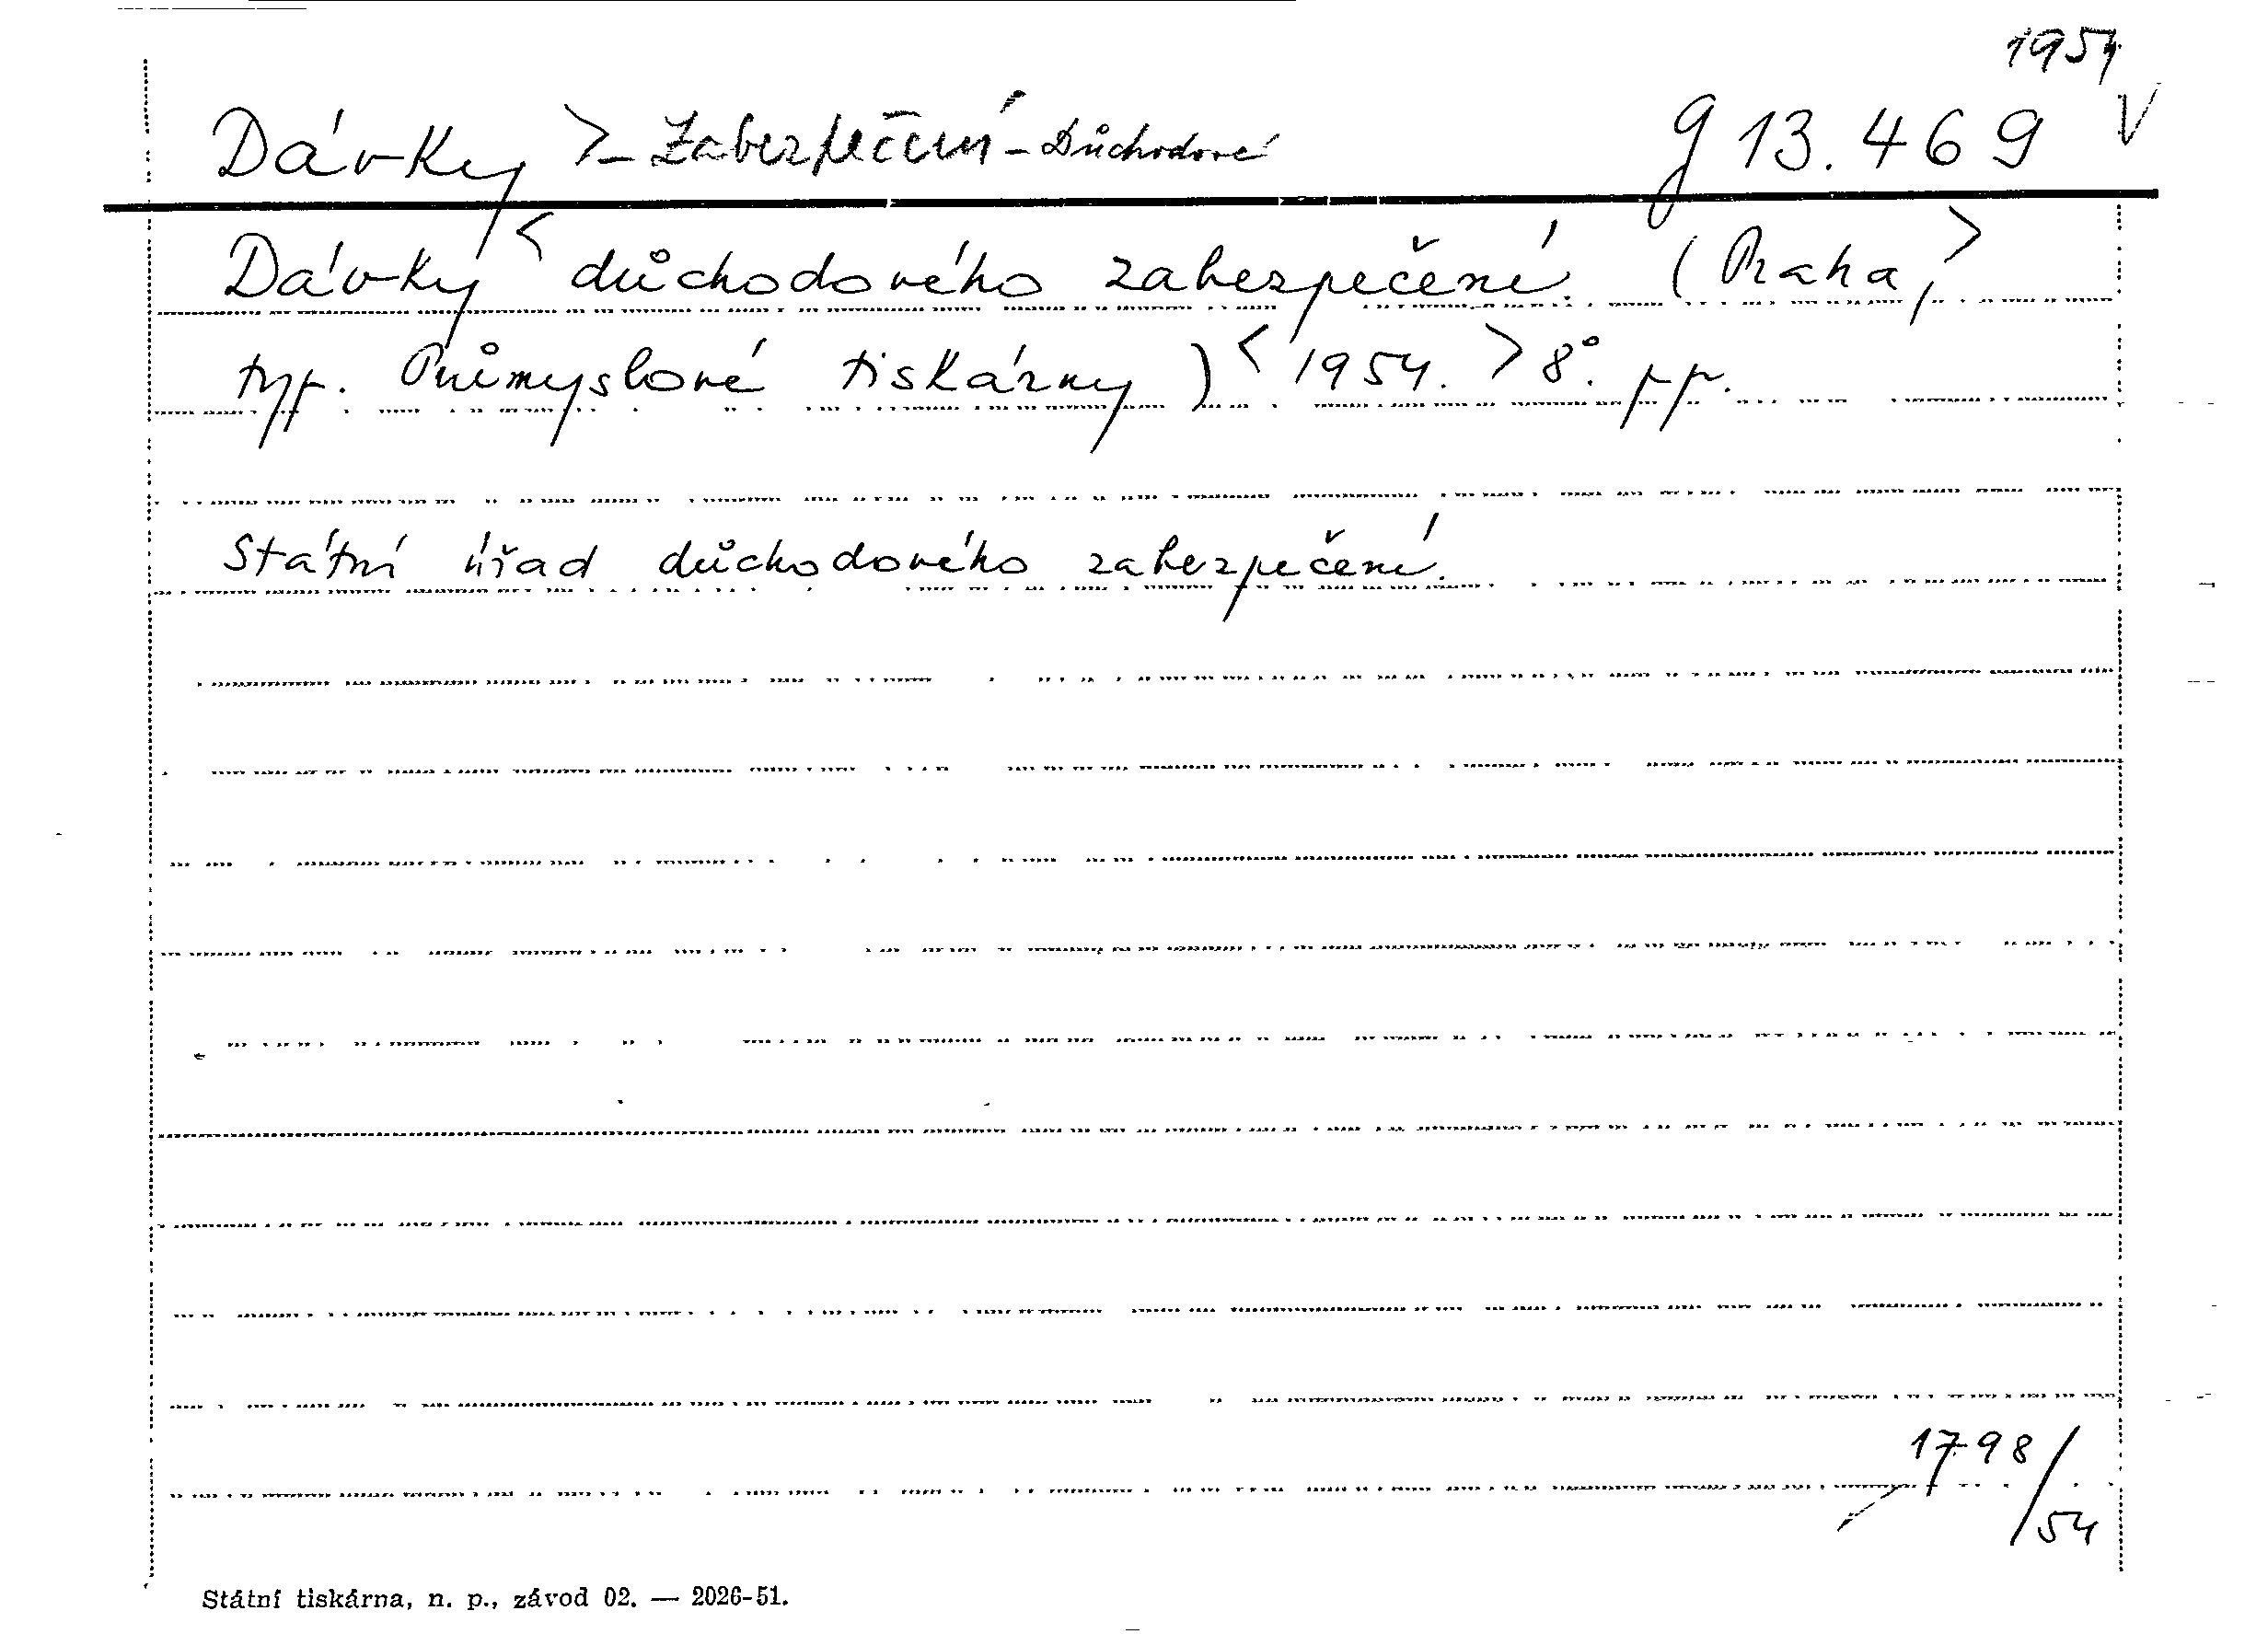 1954
Dávky > - Zabezpečení - Důchodové g 13.469 V
Dávky < důchodového zabezpečení. (Praha, >
typ. Průmyslové tiskárny) < 1954. > 8°. pp.
Státní úřad důchodového zabezpečení.
1798/54
Státní tiskárna, n. p., závod 02. — 2026-51.